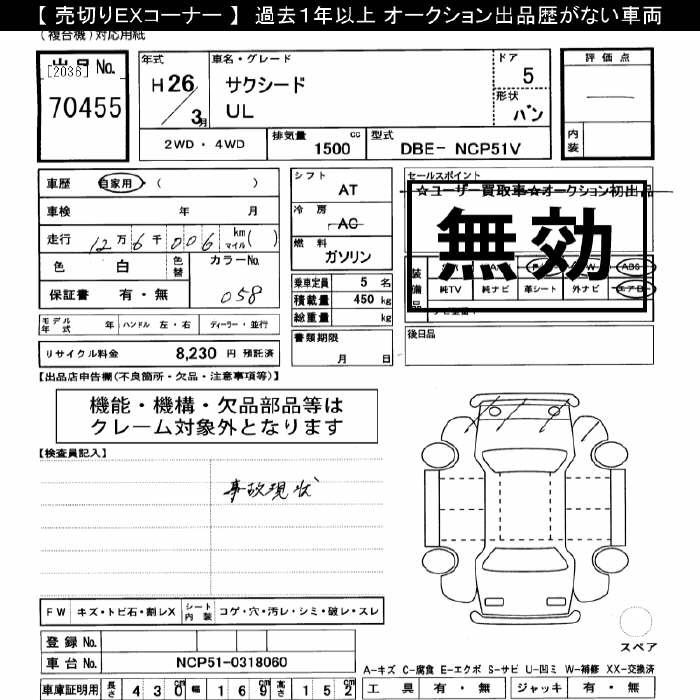 【 売切りEXコーナー 】 過去1年以上 オークション出品歴がない車両
(複合機)対応用紙
出品No.
[2036]
70455
年式
H26/3月
車名・グレード
サクシード
UL
ドア
5
形状
バン
評価点
内装
2WD・4WD
排気量 1500 cc
型式 DBE- NCP51V
車歴 自家用 ( )
車検 年 月
走行 12万6千006 km マイル ( )
色 白 色替
カラーNo. 058
保証書 有・無
シフト AT
冷房 AC
燃料 ガソリン
乗車定員 5 名
積載量 450 kg
総重量 kg
書類期限
月 日
セールスポイント
☆ユーザー買取車☆オークション初出品
無効
装備品
ABS
純TV 純ナビ 革シート 外ナビ エアB
後日品
モデル年式 年 ハンドル 左・右 ディーラー・並行
リサイクル料金 8,230 円 預託済
【出品店申告欄(不良箇所・欠品・注意事項等)】
機能・機構・欠品部品等は
クレーム対象外となります
【検査員記入】
事故現状
FW キズ・トビ石・割レX シート内装 コゲ・穴・汚レ・シミ・破レ・スレ
登録No.
車台No. NCP51-0318060
車庫証明用 長さ 430cm 幅 169cm 高さ 152cm
スペア
A-キズ C-腐食 E-エクボ S-サビ U-凹ミ W-補修 XX-交換済
工具 有・無 ジャッキ 有・無